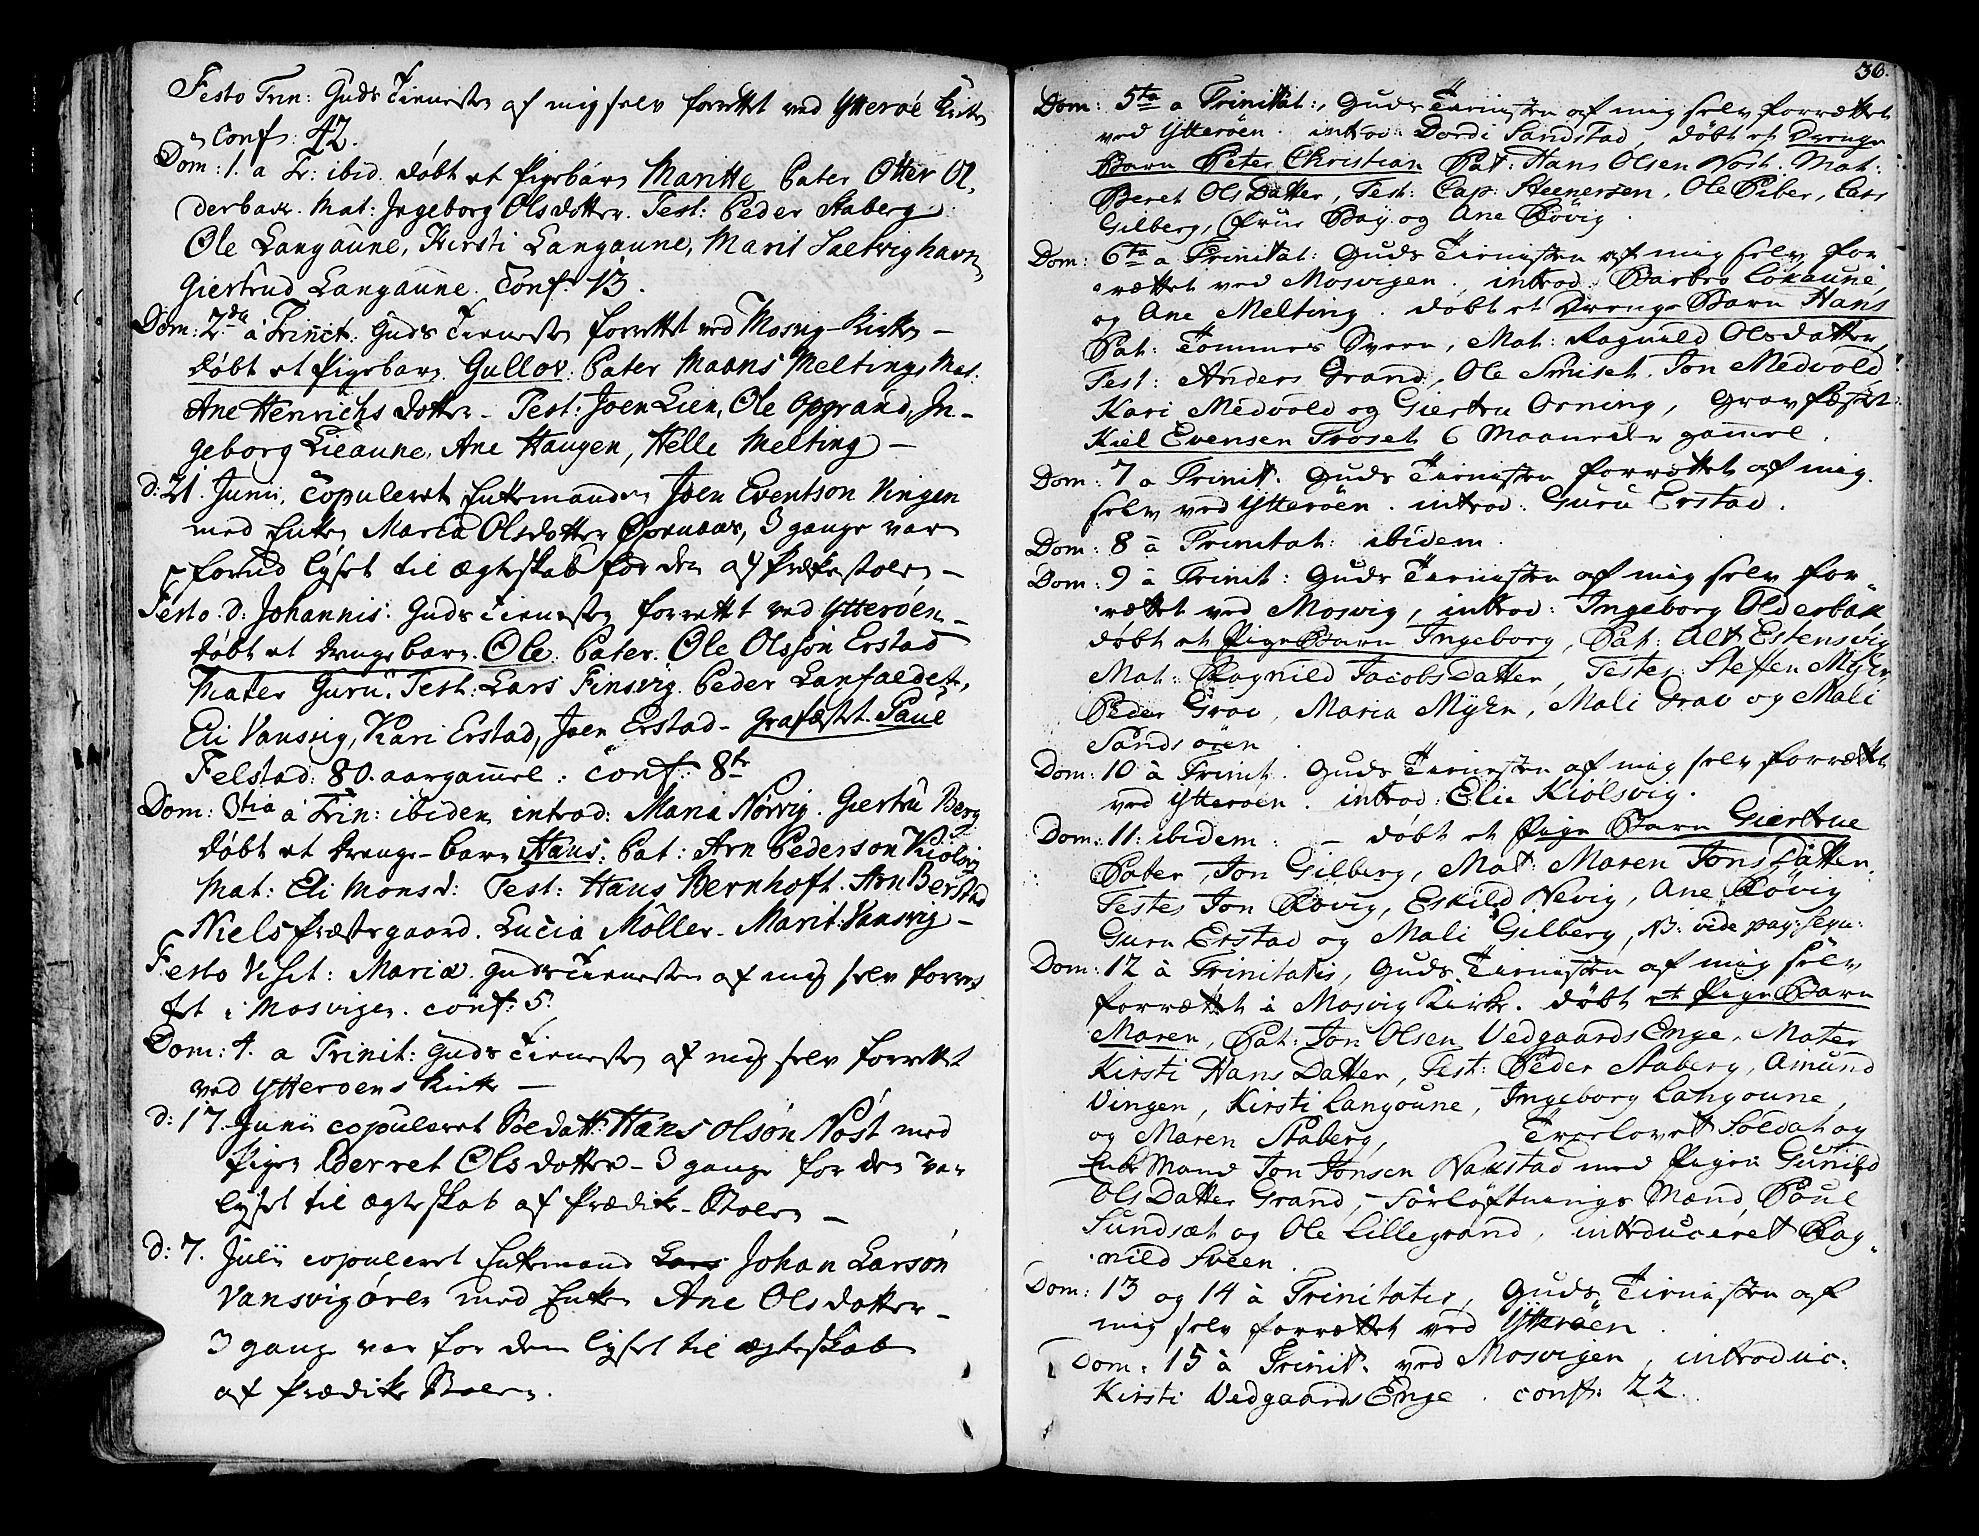 Festo Trin: Guds Tienesten af mig selv forrettet ved Ytterøe Kirke
Conf: 42.
Dom: 1. a Tr: ibid. døbt et Pigebarn Maritte Pater Otter Ol,
derbak. Mat: Ingeborg Olsdotter. Test: Peder Staberg,
Ole Langaune, Kirsti Langaune, Marit Saltvighavn,
Giertrud Langaune. Conf. 13.
Dom: 2da a Trinit: Guds Tienesten forrettet ved Mosvig Kirke –
døbt et Pigebarn Gullov. Pater Maans Melting, Mat:
Ane Henrichsdotter – Test: Joen Lien, Ole Opgrand, In-
geborg Lieaune, Ane Haugen, Helle Melting –
d: 21. Junii, Copuleret Enkemanden Joen Eventson Vingen
med Enken Maria Olsdotter, 3 gange var
forud lyset til ægteskab for dem af Prækestolen –
Festo d: Johannis: Guds Tienesten forrettet ved Ytterøen –
døbt et drengebarn Ole. Pater Ole Olsson Erstad
Mater Guru. Test: Lars Finsvig. Peder Lanfaldet,
Eli Vansvig, Kari Erstad, Joen Erstad – grafæstet Paul
Felstad: 80. aar gamel: Conf: 8te
Dom: 3tia a Trin: ibidem introd: Maria Norvig. Giertru Berg
døbt et drenge-barn Hans. Pat: Arn Pederson Kiølsvig
Mat: Eli Monsd: Test: Hans Bernhoft. Arn Berstad
Niels Præstegaard. Lucia Möller. Marit Vansvig –
Festo Visit: Mariæ. Guds Tienesten af mig selv forret
tet i Mosvigen. conf: 5.
Dom: 4. a Trinit: Guds Tienesten af mig selv forrettet
ved Ytteroens Kirke –
d: 17. Junii copuleret Soldatt: Hans Olsøn Nøst med
Pigen Berret Olsdotter – 3 gange for dem var
lyset til ægteskab af Prædike-Stolen –
d: 7. Julii copuleret Enkemand Lars Johan Larsøn
Vansvigøren med Enken Ane Olsdotter –
3 gange var for dem lyset til ægteskab
af Prædike Stolen.
36.
Dom: 5ta a Trinitat:, Guds Tienisten af mig selv forrættet
ved Ytterøen. introd: Dordi Sandstad, døbt et Drenge
Barn Peter Christian Pat: Hans Olsen Nøst. Mat:
Beret OlsDatter, Test: Cap: Steenersen, Ole Piber, Lars
Gilberg, frue Bay og Ane Røvig.
Dom: 6ta a Trinitat: Guds Tienisten af mig selv for
rættet ved Mosvigen, introd: Barbro Lokaune,
og Ane Melting. døbt et Drenge Barn Hans
Pat: Tommes Sveen, Mat: Ragnild Olsdatter,
Test: Anders Grand, Ole Smiset, Jon Medvold,
Kari Medvold og Giertru Orning, Gravfæstet
Kiel Evensen Troset 6 Maaneder gammel.
Dom: 7 a Trinit. Guds Tienisten forrettet af mig
selv ved Ytterøen. introd: Guru Erstad.
Dom: 8 à Trinitat: ibidem.
Dom: 9 à Trinit: Guds Tienisten af mig selv for-
rættet ved Mosvig, introd: Ingeborg Olderbak
døbt et Pige Barn Ingeborg, Pat: Alt Estensvig
Mat: Ragnild JacobsDatter, Testes: Steffen Myhr,
Peder Grav, Maria Myhr, Mali Grav og Mali
Sandsøren.
Dom: 10 à Trinit. Guds Tienisten af mig selv forrættet
ved Ytterøen. introd: Elie Kiølsvig.
Dom: 11: ibidem. – døbt et Pige Barn Giertrue
Pater, Jon Gilberg, Mat: Maren JonsDatter
Testes Jon Røvig, Eskild Nevig, Ane Røvig
Guru Erstad og Mali Gilberg, NB: vide pag: sequ:
Dom: 12 à Trinitatis, Guds Tienisten af mig selv
forrættet i Mosvig Kirke. døbt et Pige Barn
Maren, Pat: Jon Olsen VedgaardsEnge, Mater
Kirsti HansDatter, Test: Peder Staberg, Amund
Vingen, Kirsti Langoune, Ingeborg Langoune,
og Maren Staberg, Troelovet Soldat og
Enke Mand Jon Jonsen Nakstad med Pigen Gunild
OlsDatter Grand, – Forløftnings Mænd Poul
Sundsæt og Ole Lillegrand, introduceret Rag-
nild Sveen.
Dom: 13 og 14 à Trinitatis, Guds Tienisten af
mig selv forrættet ved Ytterøen.
Dom: 15 à Trinit. ved Mosvigen, introduc:
Kirsti VedgaardsEnge. conft: 22.